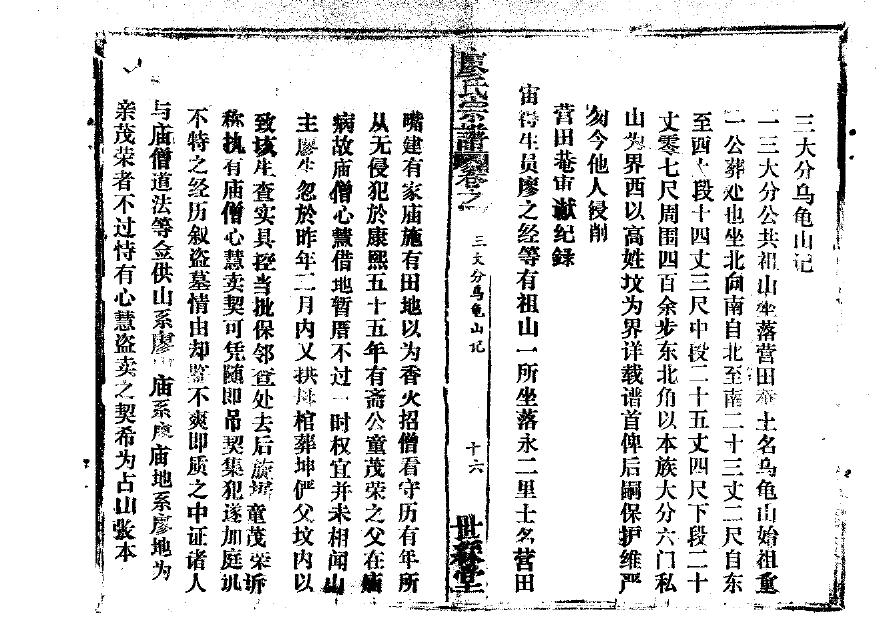 三大分乌龟山记
一三大分公共祖山坐落营田土名乌龟山始祖重
一公葬处也坐北向南自北至南二十三丈二尺自东
至西上段十四丈三尺中段二十五丈四尺下段二十
丈零七尺周围四百余步东北角以本族大分六门私
山为界西以高姓坟为界详载谱首俾后嗣保护维严
勿令他人侵削
营田菴审谳纪录
宙得生员廖之经等有祖山一所坐落永二里土名营田
廖氏宗谱卷之
三大分乌龟山记
十六
世彩堂
嘴建有家庙施有田地以为香火招僧看守历有年所
从无侵犯於康熙五十五年有斋公童茂荣之父在庙
病故庙僧心慧借地暂厝不过一时权宜并未相闻山
主廖生忽於昨年二月内又拱母棺葬坤俨父坟内以
致该生查实具控当批保邻查处去后旋据童茂荣诉
称执有庙僧心慧卖契可凭随即吊契集犯遂加庭讯
不特之经历叙盗墓情由却凿不爽即质之中证诸人
与庙僧道法等佥供山系廖山庙系廖庙地系廖地为
亲茂荣者不过恃有心慧盗卖之契希为占山张本